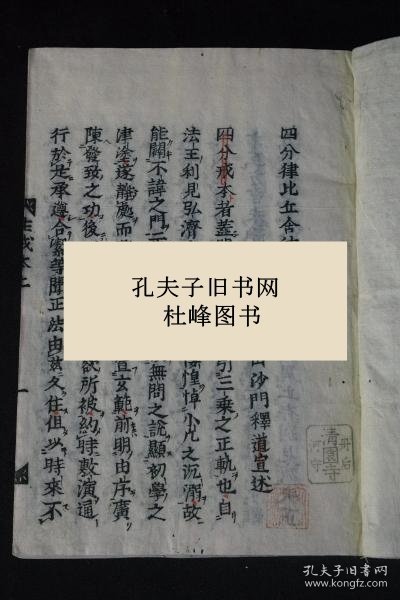 四分律比丘含
沙門釋道宣述
四分戒本者蓋
引三乘之正軌也自
法王利見弘濟
惶悼小凡之沉溺故
能開不諱之門
無問之說顯初學之
津塗遂靜處而
宣玄範前明由序廣
陳發致之功後
欲所被約時敷演通
行於是承遵合衆等聞正法由茲久住但以時來不
孔夫子旧书网
杜峰图书
丹后
清園寺
河守
孔夫子旧书网
www.kongfz.com